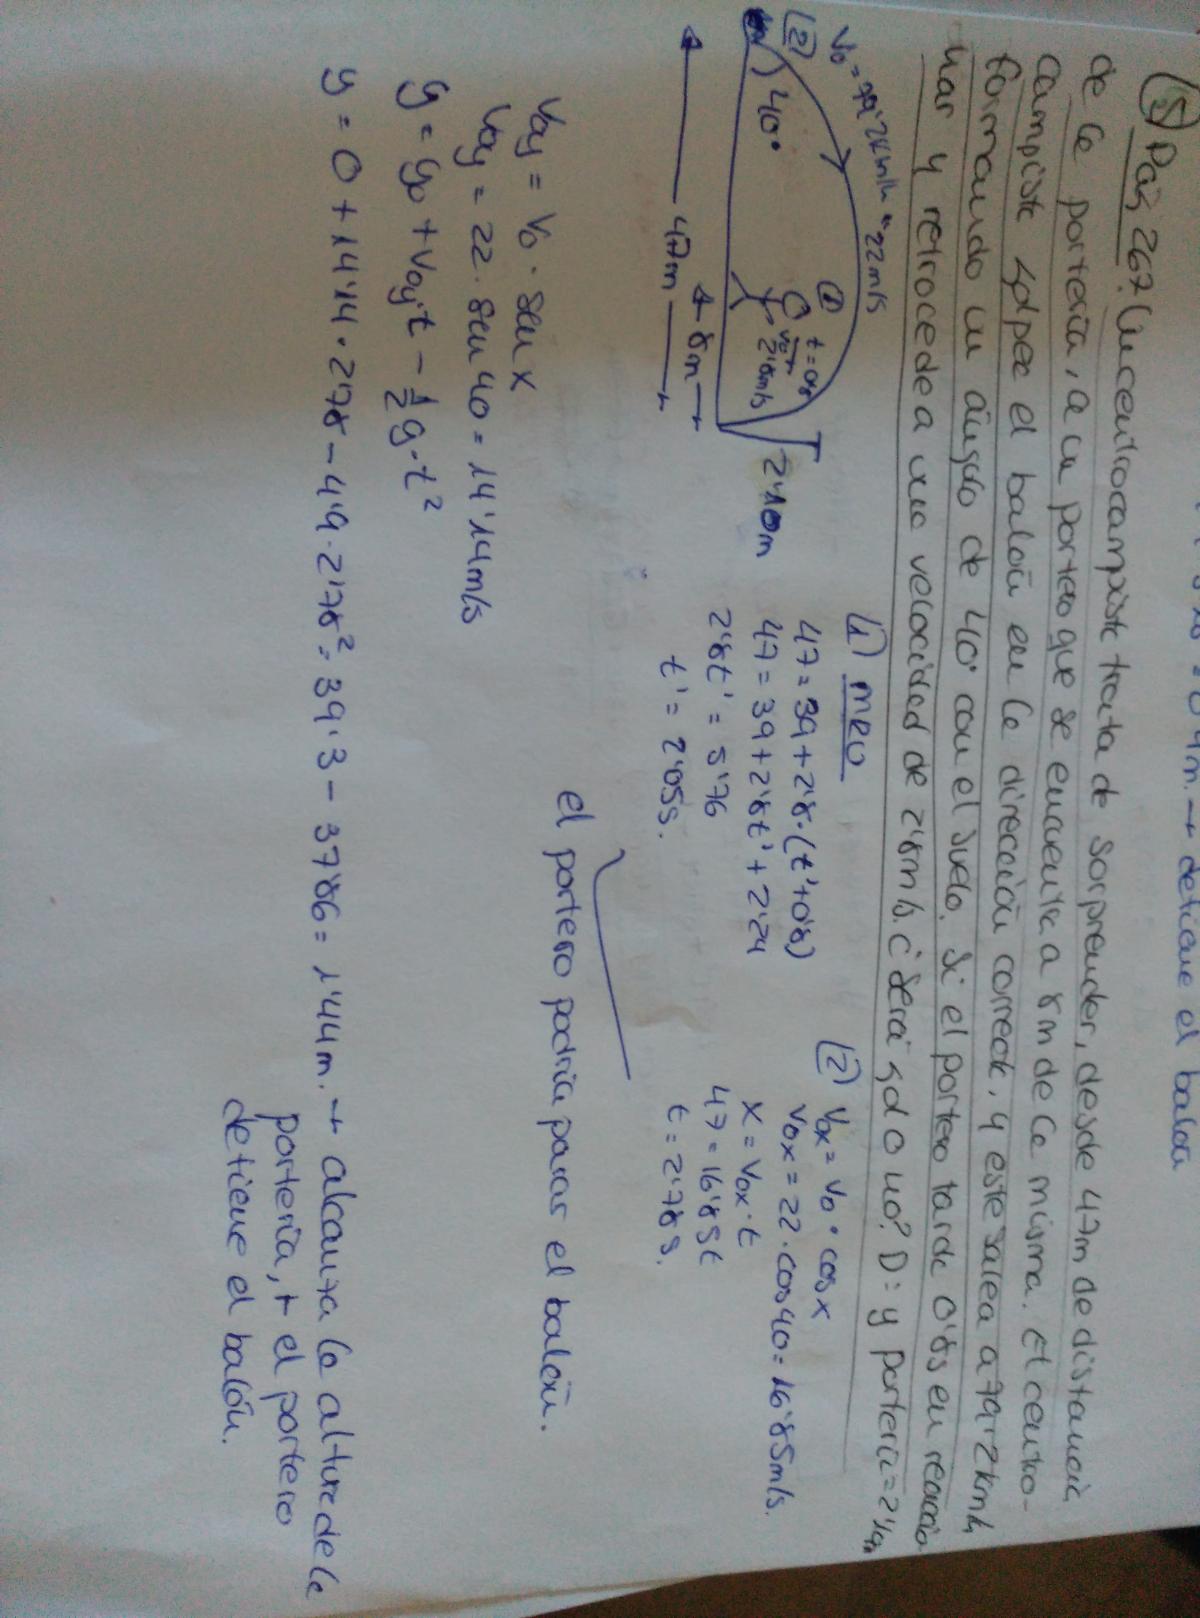 → detiene el balón
⑤ Pág 267. Un centrocampista trata de sorprender, desde 47m de distancia
de la portería, a un portero que se encuentra a 8m de la misma. El centro-
campista golpea el balón en la dirección correcta, y este sale a 79'2km/h
formando un ángulo de 40° con el suelo. Si el portero tarda 0'8s en reaccio-
nar y retrocede a una velocidad de 2'8m/s. ¿Será gol o no? D: y portería = 2'4m
V₀ = 79'2km/h = 22m/s
(2)
40°
(1)
t=0'8
2'8m/s
2'10m
8m
47m
(1) MRU
47 = 39 + 2'8·(t'+0'8)
47 = 39 + 2'8t' + 2'24
2'8t' = 5'76
t' = 2'05s.
(2) Vox = Vo · cos x
Vox = 22 · cos 40 = 16'85m/s.
x = Vox · t
47 = 16'85t
t = 2'78s.
el portero podría parar el balón.
Voy = Vo · sen x
Voy = 22 · sen 40 = 14'14m/s
y = yo + Voy·t - 1/2 g·t²
y = 0 + 14'14 · 2'78 - 4'9 · 2'78² = 39'3 - 37'86 = 1'44m. → alcanza la altura de la
portería, + el portero
detiene el balón.